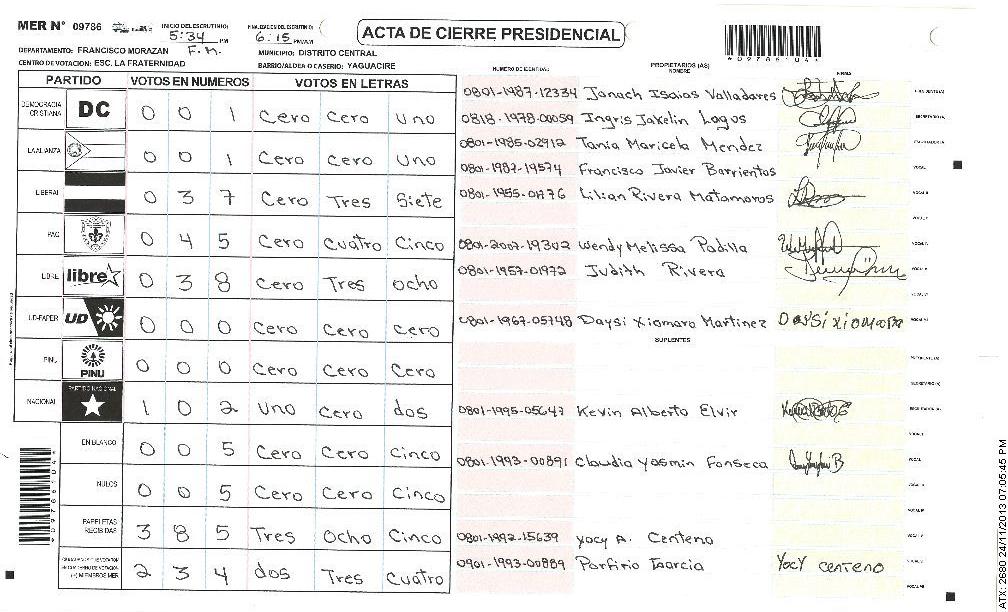 MER N° 09786
INICIO DEL ESCRUTINIO: 5:34 PM F.M.
FINALIZACION DEL ESCRUTINIO: 6:15 PM/AM/M
ACTA DE CIERRE PRESIDENCIAL
DEPARTAMENTO: FRANCISCO MORAZAN
MUNICIPIO: DISTRITO CENTRAL
CENTRO DE VOTACION: ESC. LA FRATERNIDAD
BARRIO/ALDEA O CASERIO: YAGUACIRE
*097861041*
PARTIDO VOTOS EN NUMEROS VOTOS EN LETRAS
NUMERO DE IDENTIDAD PROPIETARIOS (AS) NOMBRE FIRMA
DEMOCRACIA CRISTIANA DC 0 0 1 Cero Cero uno
LA ALIANZA 0 0 1 Cero Cero uno
LIBERAL 0 3 7 Cero Tres Siete
PAC 0 4 5 Cero cuatro Cinco
LIBRE libre 0 3 8 Cero Tres ocho
UD-FAPER UD 0 0 0 Cero Cero cero
PINU PINU 0 0 0 Cero Cero Cero
NACIONAL PARTIDO NACIONAL 1 0 2 uno Cero dos
EN BLANCO 0 0 5 Cero Cero Cinco
NULOS 0 0 5 Cero Cero Cinco
PAPELETAS RECIBIDAS 3 8 5 Tres Ocho Cinco
(+) MIEMBROS MER 2 3 4 dos Tres Cuatro
0801-1987-12334 Jonach Isaias Valladares PRESIDENTE(A)
0818-1978-00059 Ingris Jakelin Lagos SECRETARIO(A)
0801-1985-02912 Tania Maricela Mendez ESCRUTADOR(A)
0801-1987-19574 Francisco Javier Barrientos VOCAL I
0801-1955-01776 Lilian Rivera Matamoros VOCAL II
VOCAL III
0801-2007-19302 Wendy Melissa Padilla VOCAL IV
0801-1957-01972 Judith Rivera VOCAL V
VOCAL VI
0801-1967-05748 Daysi Xiomara Martinez VOCAL VII
SUPLENTES
PRESIDENTE(A)
SECRETARIO(A)
0801-1995-05647 Kevin Alberto Elvir ESCRUTADOR(A)
VOCAL I
0801-1993-00891 Claudia Yasmin Fonseca VOCAL II
VOCAL III
VOCAL IV
0801-1992-15639 Yocy A. Centeno VOCAL V
0901-1993-00889 Porfirio Garcia Yocy centeno VOCAL VI
VOCAL VII
*097861041*
ATX: 2680 24/11/2013 07:05:45 PM